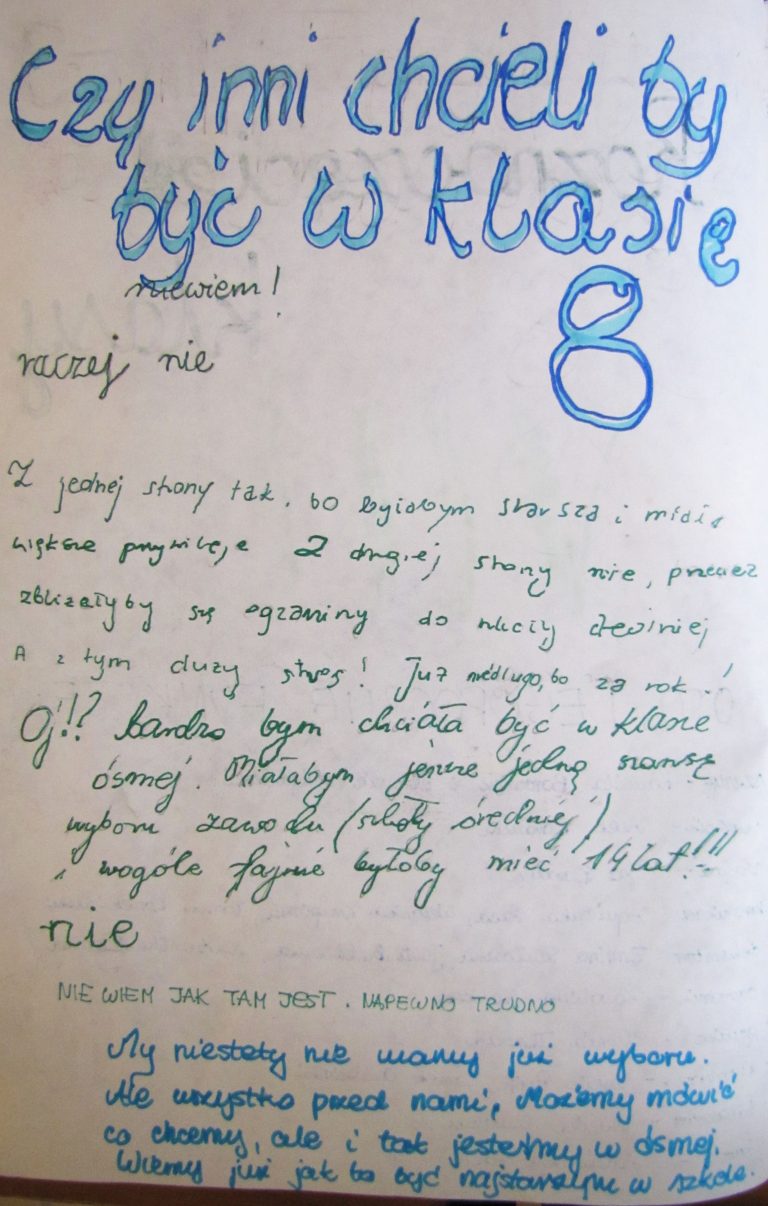 Czy inni chcieli by
być w klasie
8
niewiem!
raczej nie
Z jednej strony tak, bo byłabym starsza i miała
większe przywileje Z drugiej strony nie, przecież
zbliżałyby się egzaminy do
A z tym duży stres! Już niedługo, bo za rok!
Oj!!? bardzo bym chciała być w klasie
ósmej. Miałabym jeszcze jedną szansę
wyboru zawodu (szkoły średniej)
i wogóle fajnie byłoby mieć 14 lat!!!
nie
NIE WIEM JAK TAM JEST. NAPEWNO TRUDNO
My niestety nie mamy już wyboru.
Ale wszystko przed nami, Możemy mówić
co chcemy, ale i tak jesteśmy w ósmej.
Wiemy już jak to być najstarszym w szkole.